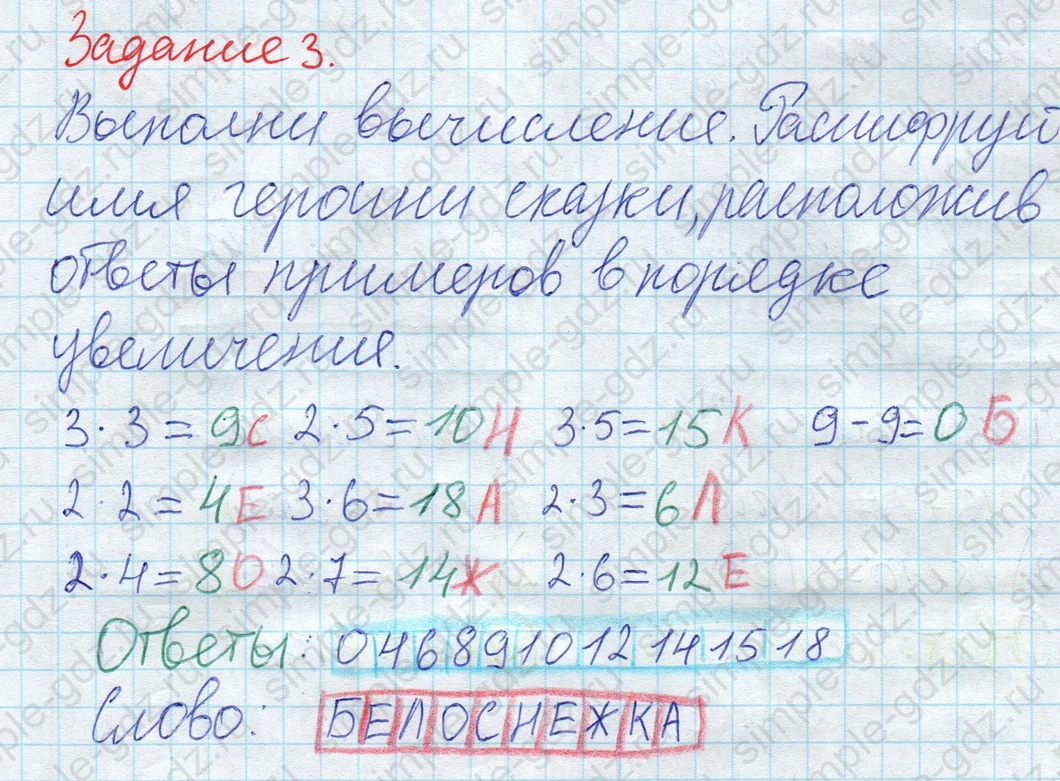 Задание 3.
Выполни вычисление. Расшифруй
имя героини сказки, расположив
ответы примеров в порядке
увеличения.
3·3=9с 2·5=10Н 3·5=15К 9-9=0Б
2·2=4Е 3·6=18А 2·3=6Л
2·4=8О 2·7=14Ж 2·6=12Е
Ответы: 0 4 6 8 9 10 12 14 15 18
Слово: БЕЛОСНЕЖКА